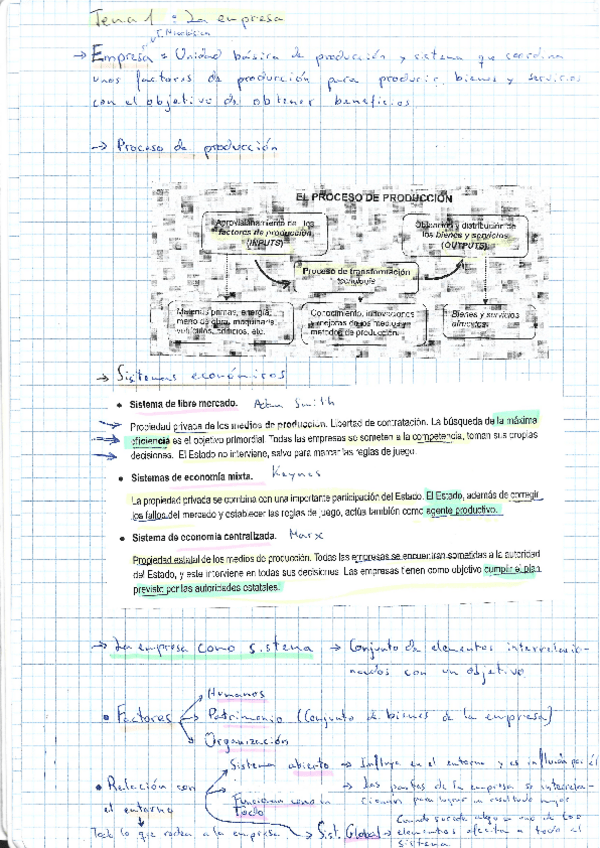 Tema 1 : La empresa
→ Empresa = Unidad básica de producción y sistema que coordina
unos factores de producción para producir bienes y servicios
con el objetivo de obtener beneficios
→ Proceso de producción
EL PROCESO DE PRODUCCIÓN
Aprovisionamiento de los
factores de producción
(INPUTS)
Obtención y distribución de
los bienes y servicios
(OUTPUTS)
Proceso de transformación
tecnología
Materias primas, energía,
mano de obra, maquinaria,
vehículos, edificios, etc.
Conocimiento, innovaciones
y mejoras de los medios y
métodos de producción.
Bienes y servicios
→ Sistemas económicos
• Sistema de libre mercado. Adam Smith
Propiedad privada de los medios de producción. Libertad de contratación. La búsqueda de la máxima
eficiencia es el objetivo primordial. Todas las empresas se someten a la competencia, toman sus propias
decisiones. El Estado no interviene, salvo para marcar las reglas de juego.
• Sistemas de economía mixta. Keynes
La propiedad privada se combina con una importante participación del Estado. El Estado, además de corregir
los fallos del mercado y establecer las reglas de juego, actúa también como agente productivo.
• Sistema de economía centralizada. Marx
Propiedad estatal de los medios de producción. Todas las empresas se encuentran sometidas a la autoridad
del Estado, y este interviene en todas sus decisiones. Las empresas tienen como objetivo cumplir el plan
previsto por las autoridades estatales.
→ La empresa como sistema → Conjunto de elementos interrelacio-
nados con un objetivo
Humanos
• Factores → Patrimonio (Conjunto de bienes de la empresa)
Organización
Sistema abierto → Influye en el entorno y es influida por él
• Relación con
el entorno
Funciona como un
Todo
→ Las partes de la empresa se interrela-
cionan para lograr un resultado mejor
Todo lo que rodea a la empresa
→ Sist. Global → Cuando sucede algo a uno de los
elementos afecta a todo el
sistema